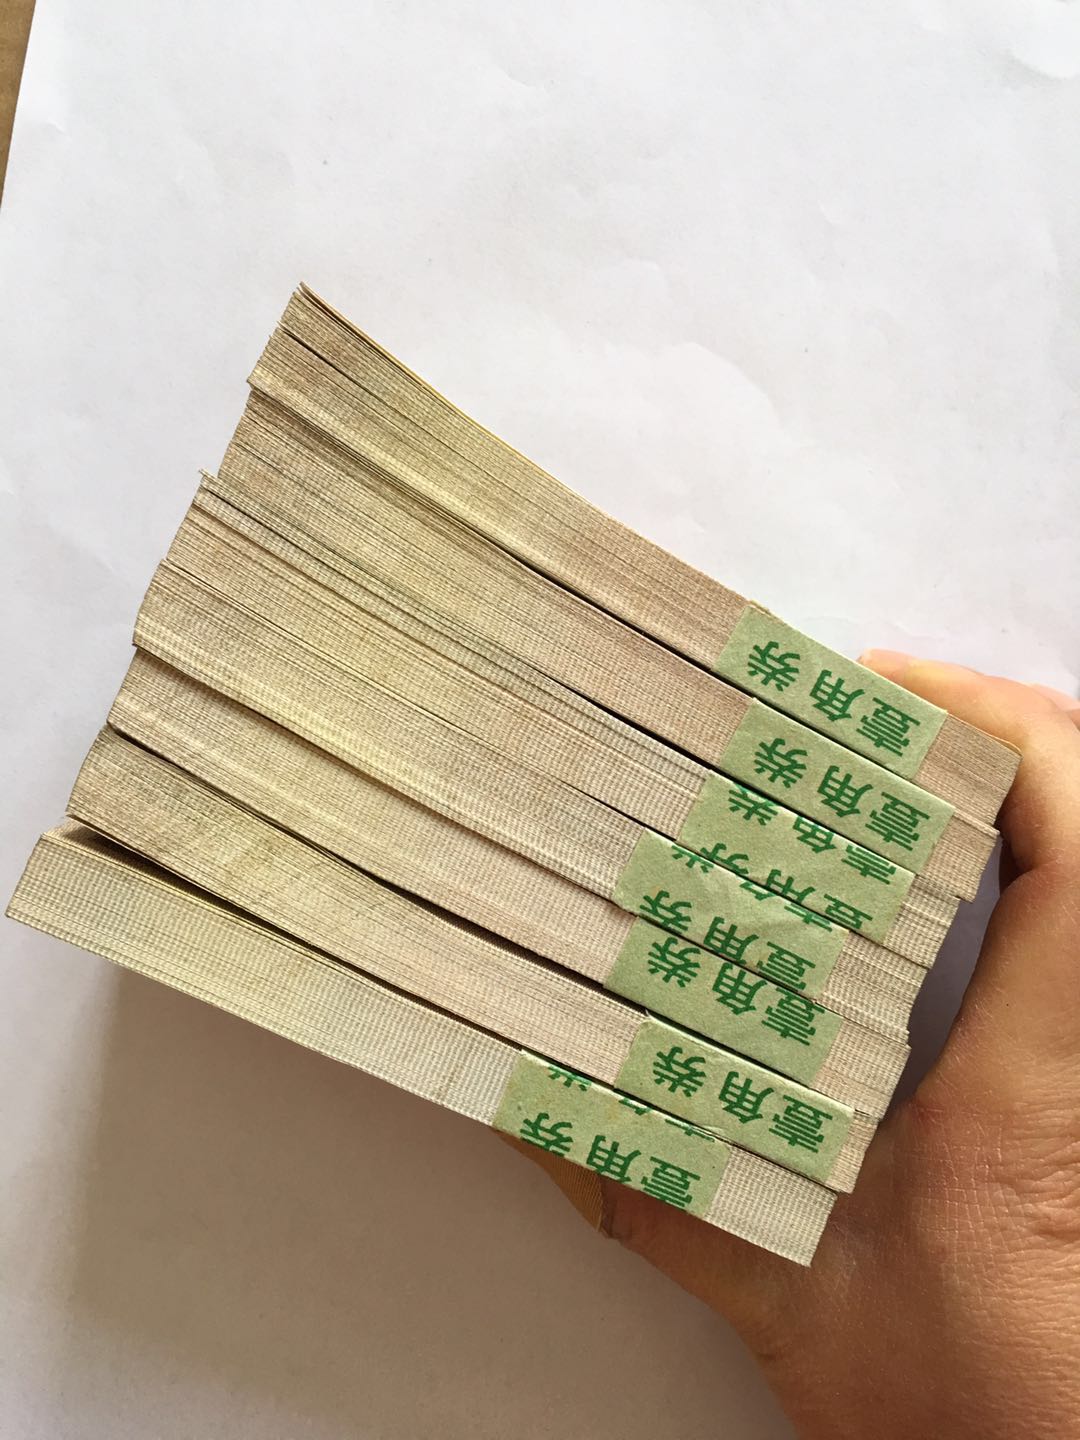 壹角券
壹角券
壹角券
壹角券
壹角券
壹角券
壹角券
壹角券